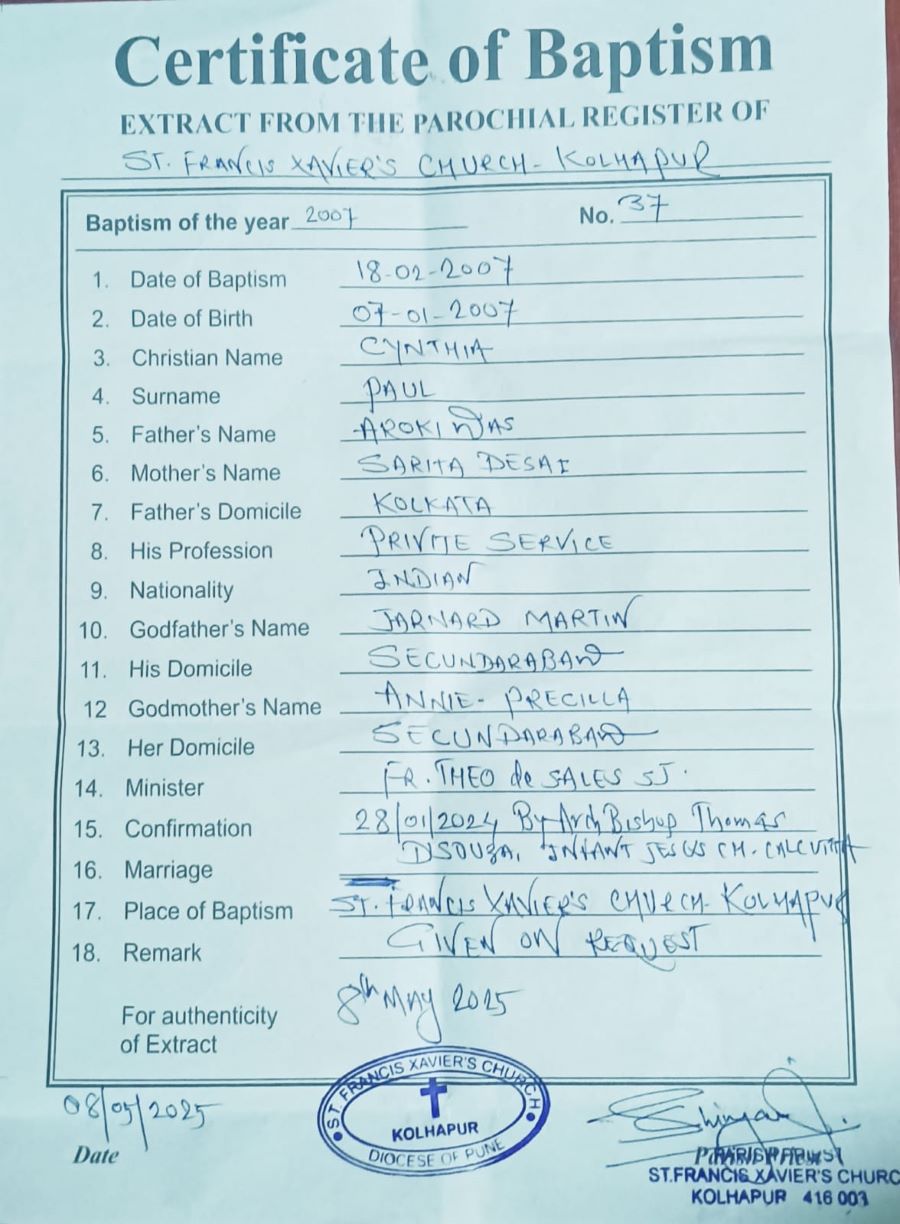 Certificate of Baptism
EXTRACT FROM THE PAROCHIAL REGISTER OF
ST. FRANCIS XAVIER'S CHURCH - KOLHAPUR
Baptism of the year 2007 No. 37
1. Date of Baptism 18-02-2007
2. Date of Birth 07-01-2007
3. Christian Name CYNTHIA
4. Surname PAUL
5. Father's Name AROKI DAS
6. Mother's Name SARITA DESAI
7. Father's Domicile KOLKATA
8. His Profession PRIVITE SERVICE
9. Nationality INDIAN
10. Godfather's Name JARNARD MARTIN
11. His Domicile SECUNDARABAD
12 Godmother's Name ANNIE - PRECILLA
13. Her Domicile SECUNDARABAD
14. Minister FR. THEO de SALES SJ.
15. Confirmation 28/01/2024 By Arch Bishop Thomas
D'SOUZA, INFANT JESUS CH - CALCUTTA
16. Marriage
17. Place of Baptism ST. FRANCIS XAVIER'S CHURCH - KOLHAPUR
18. Remark GIVEN ON REQUEST
For authenticity
of Extract 8th May 2025
ST. FRANCIS XAVIER'S CHURCH
KOLHAPUR
DIOCESE OF PUNE
08/05/2025
Date
PARISH PRIEST
ST.FRANCIS XAVIER'S CHURC
KOLHAPUR 416 003